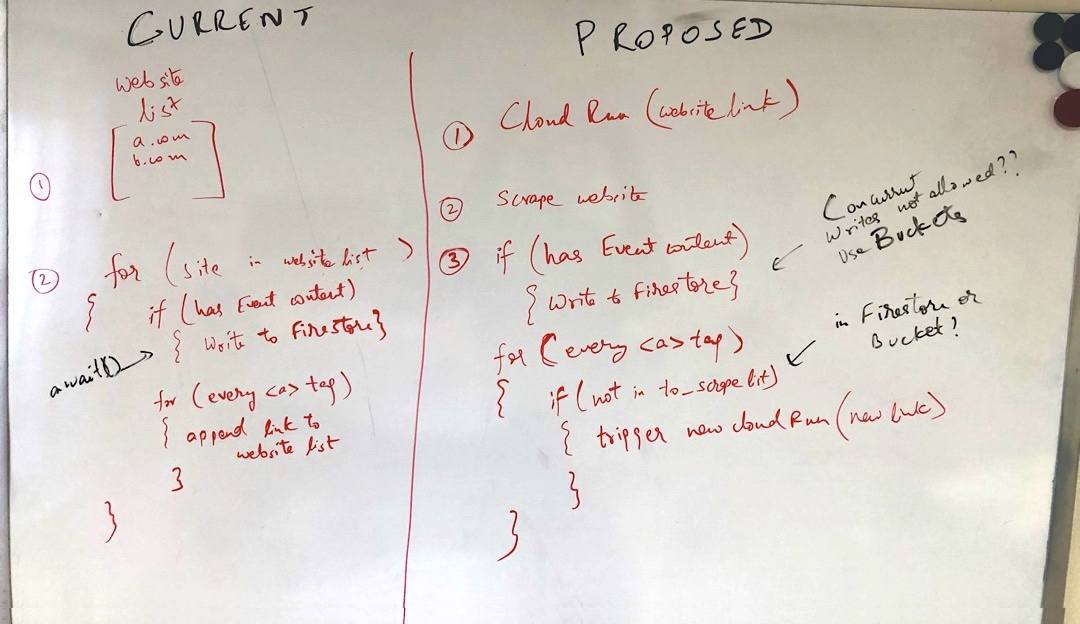 CURRENT
website
list
a.com
b.com
1
2
for (site in website list)
{
if (has Event content)
{ Write to Firestore}
await()
for (every <a> tag)
{ append link to
website list
}
}
PROPOSED
1 Cloud Run (website link)
2 Scrape website
3 if (has Event content)
{ Write to Firestore}
Concurrent
Writes not allowed??
Use Buckets
for (every <a> tag)
{
if (not in to_scrape list)
in Firestore or
Bucket?
{ trigger new cloud Run (new link)
}
}